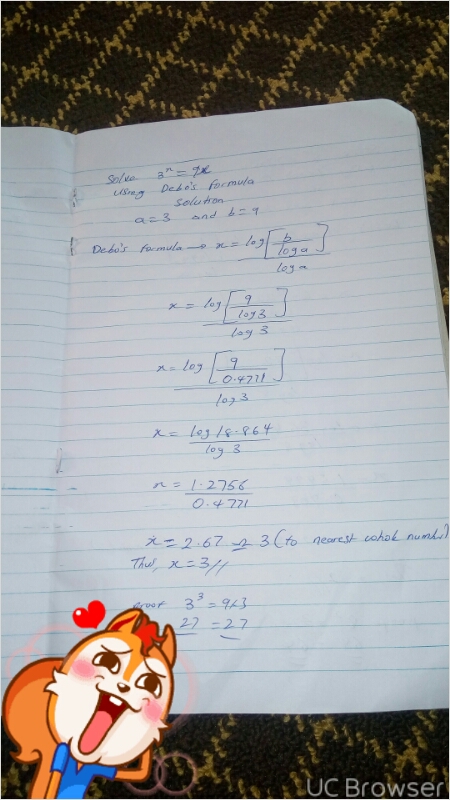 Solve 3ˣ = 9x
Using Debo's Formula
Solution
a = 3 and b = 9
Debo's Formula → x = log [b / log a] / log a
x = log [9 / log 3] / log 3
x = log [9 / 0.4771] / log 3
x = log 18.864 / log 3
x = 1.2756 / 0.4771
x = 2.67 ≏ 3 (to nearest whole number)
Thus, x = 3//
proof 3³ = 9×3
27 = 27
UC Browser